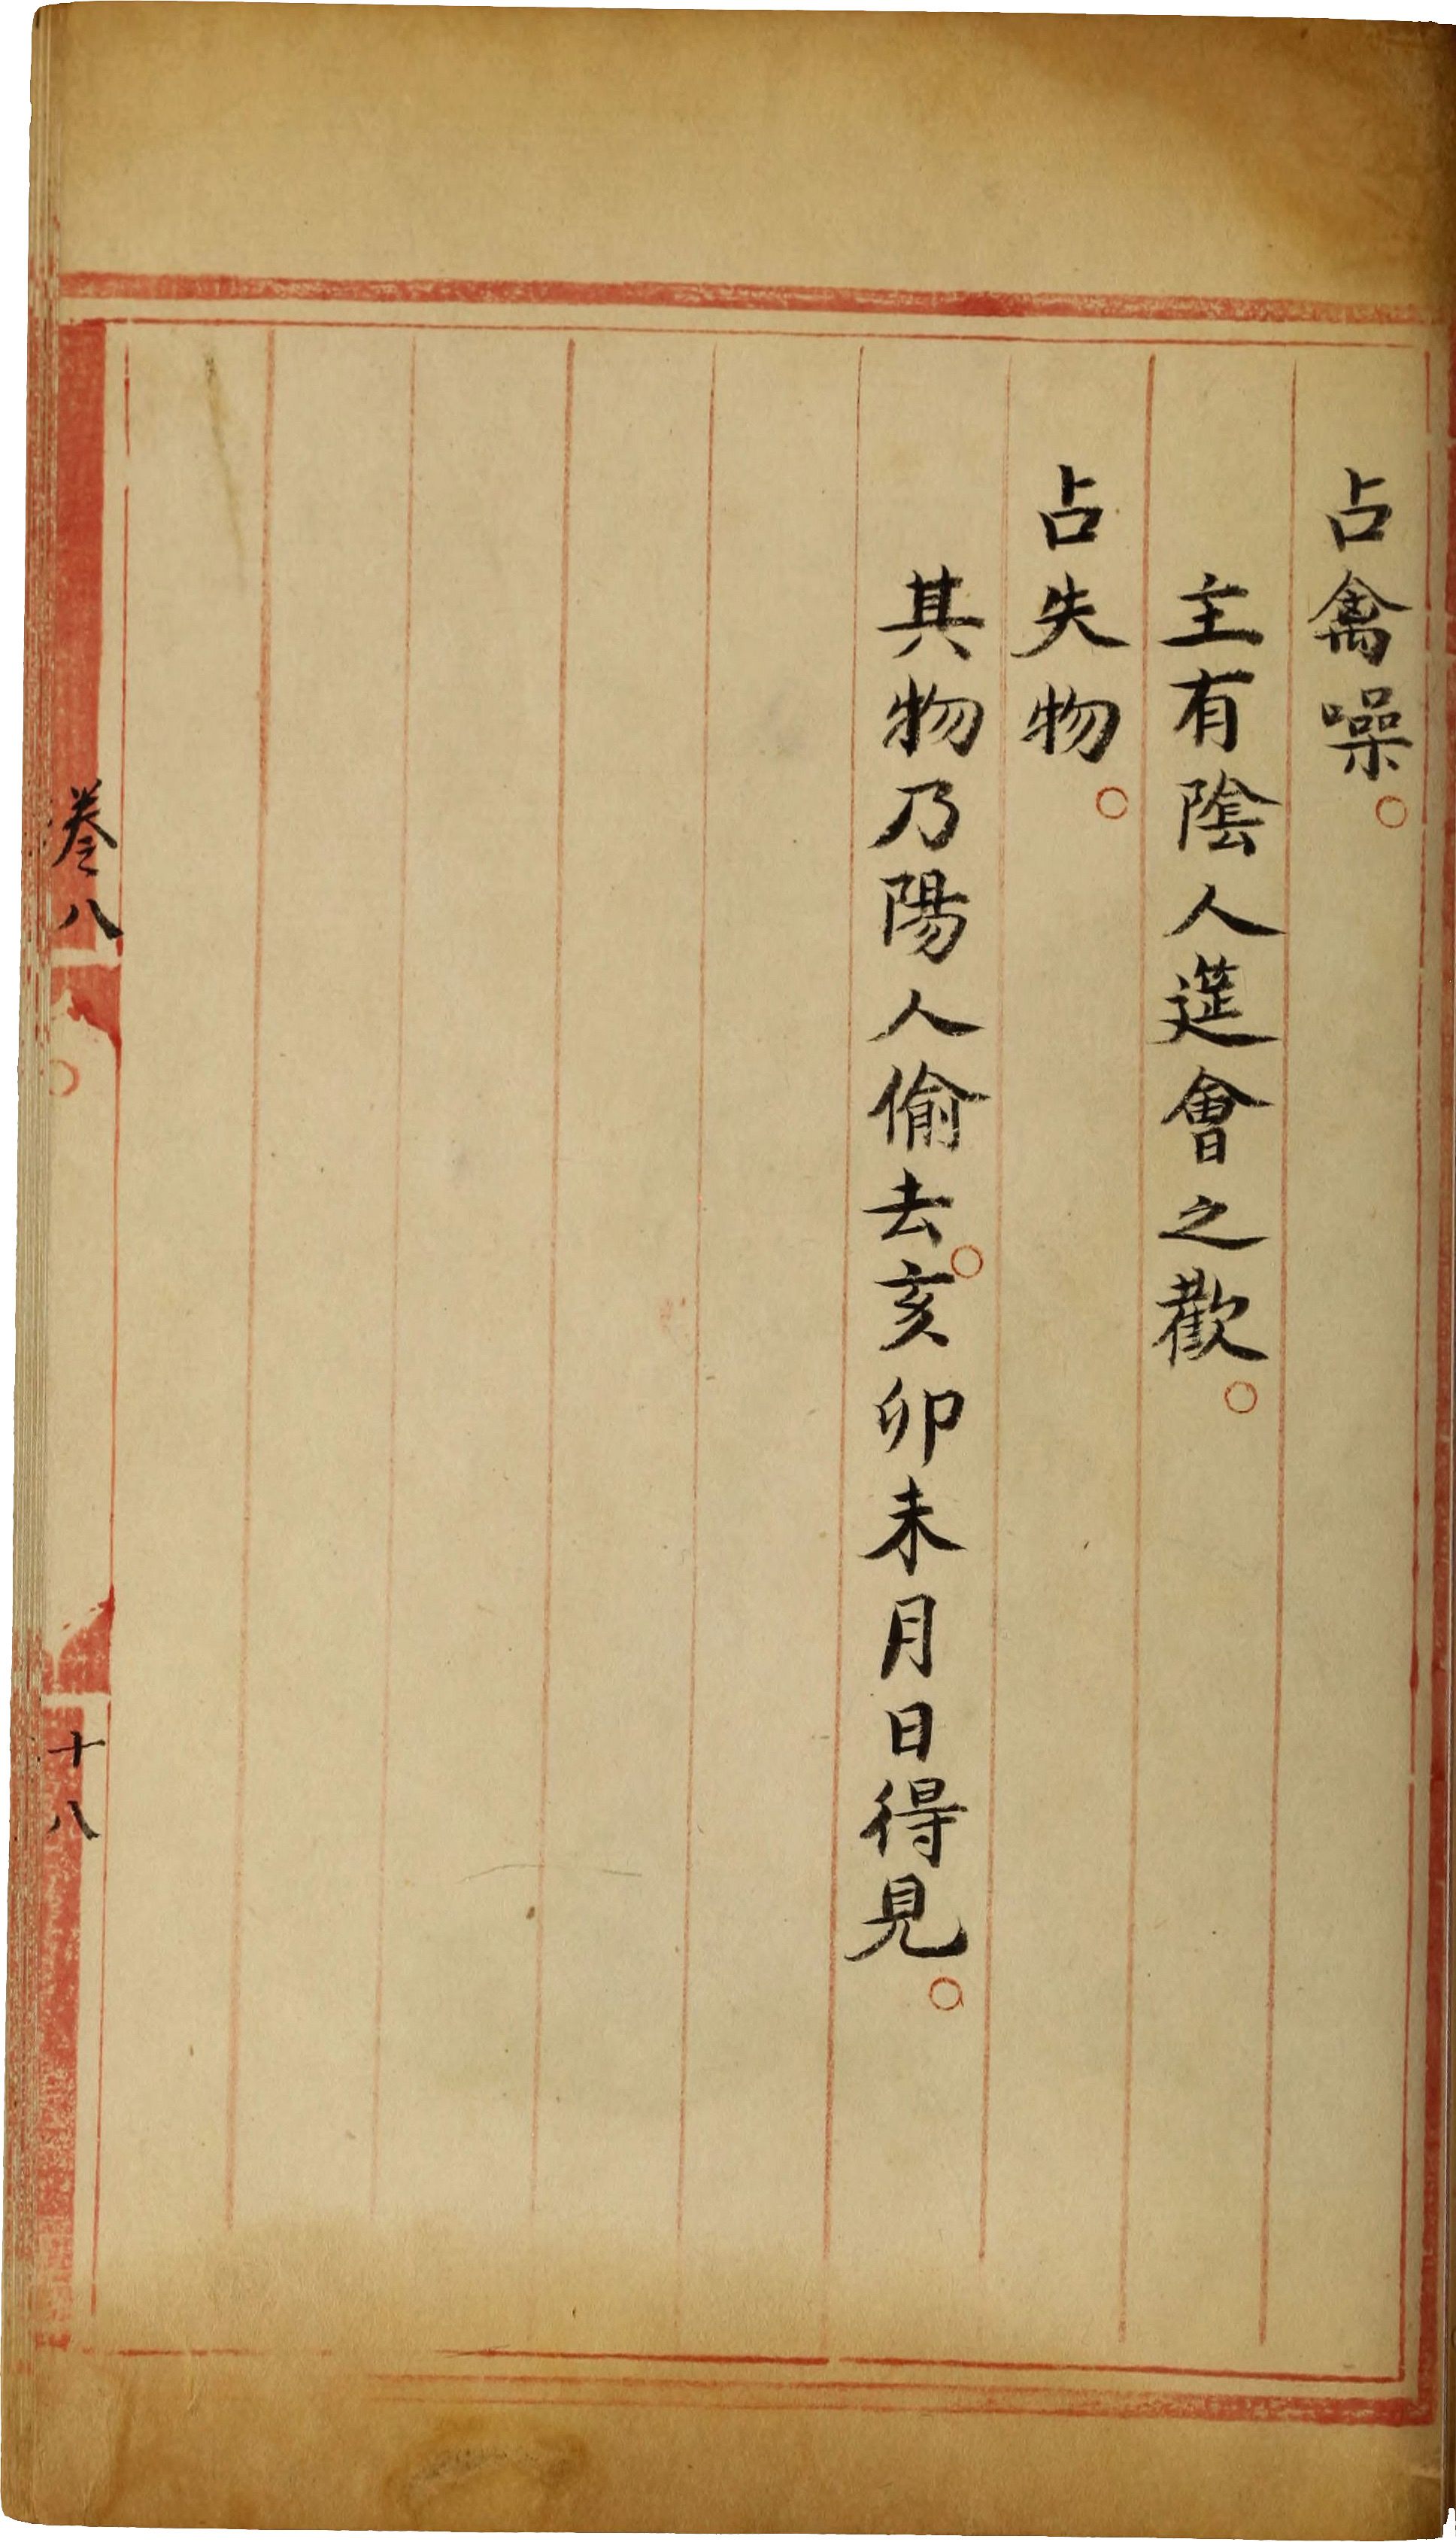 占禽噪。
主有陰人筵會之歡。
占失物。
其物乃陽人偷去。亥卯未月日得見。
卷八
十八